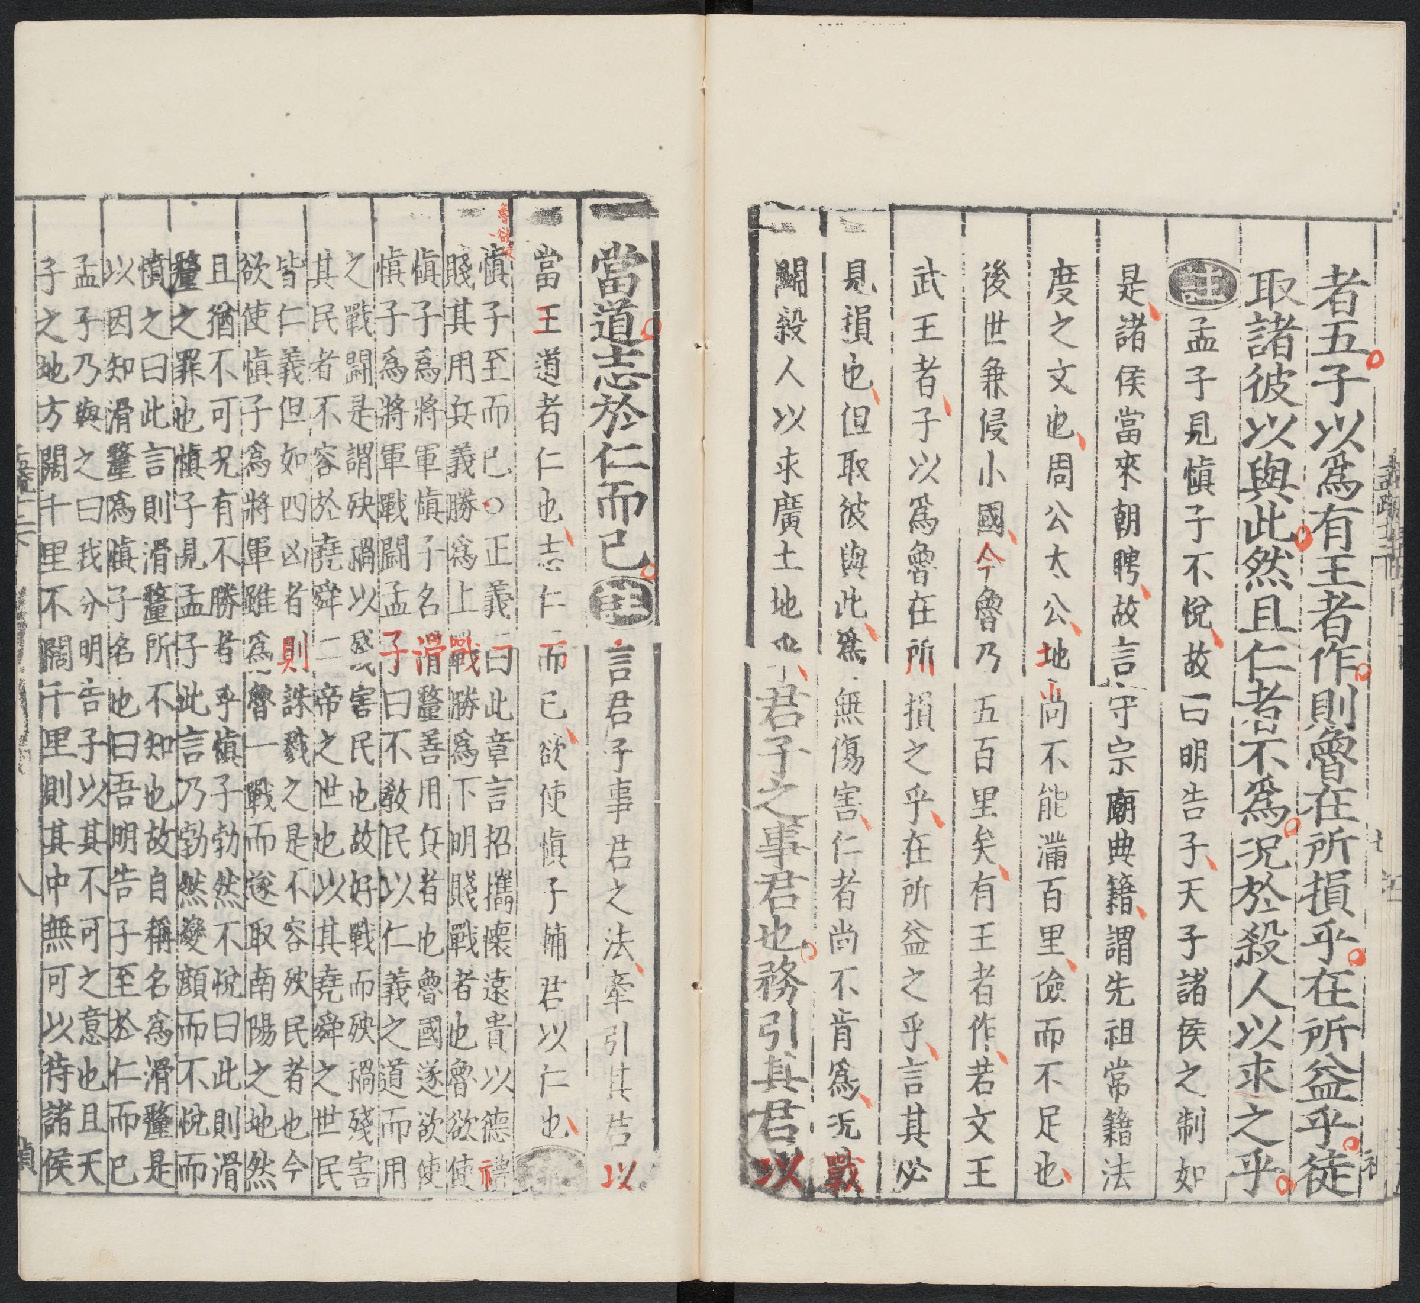 者五子以爲有王者作則魯在所損乎在所益乎徒
取諸彼以與此然且仁者不爲况於殺人以求之乎
註孟子見愼子不悅故曰明告子天子諸侯之制如
是諸侯當來朝聘故言守宗廟典籍謂先祖常籍法
度之文也周公太公地尚不能滿百里儉而不足也
後世兼侵小國今魯乃五百里矣有王者作若文王
武王者子以爲魯在所損之乎在所益之乎言其必
見損也但取彼與此爲無傷害仁者尚不肯爲况戰
鬭殺人以求廣土地也君子之事君也務引其君以
當道志於仁而已註言君子事君之法牽引其君以
當王道者仁也志仁而已欲使愼子輔君以仁也
愼子至而已○正義曰此章言招攜懷遠貴以德禮
賤其用兵義勝爲上戰勝爲下明賤戰者也魯欲使
愼子爲將軍愼子名滑釐善用兵者也魯國遂欲使
愼子爲將軍戰鬭孟子曰不敎民以仁義之道而用
之戰鬭是謂殃禍以殘害民也故好戰而殃禍殘害
其民者不容於堯舜二帝之世也以其堯舜之世民
皆仁義但如四凶者則誅戮之是不容殃民者也今
欲使愼子爲將軍雖爲魯一戰而遂取南陽之地然
且猶不可况有不勝者乎愼子勃然不悅曰此則滑
釐之罪也愼子見孟子此言乃勃然變顔而不悅而
憤之曰此言則滑釐所不知也故自稱名爲滑釐是
以因知滑釐爲愼子名也曰吾明告子至於仁而已
孟子乃與之曰我分明告子以其不可之意也且天
子之地方闊千里不闊千里則其中無可以待諸侯